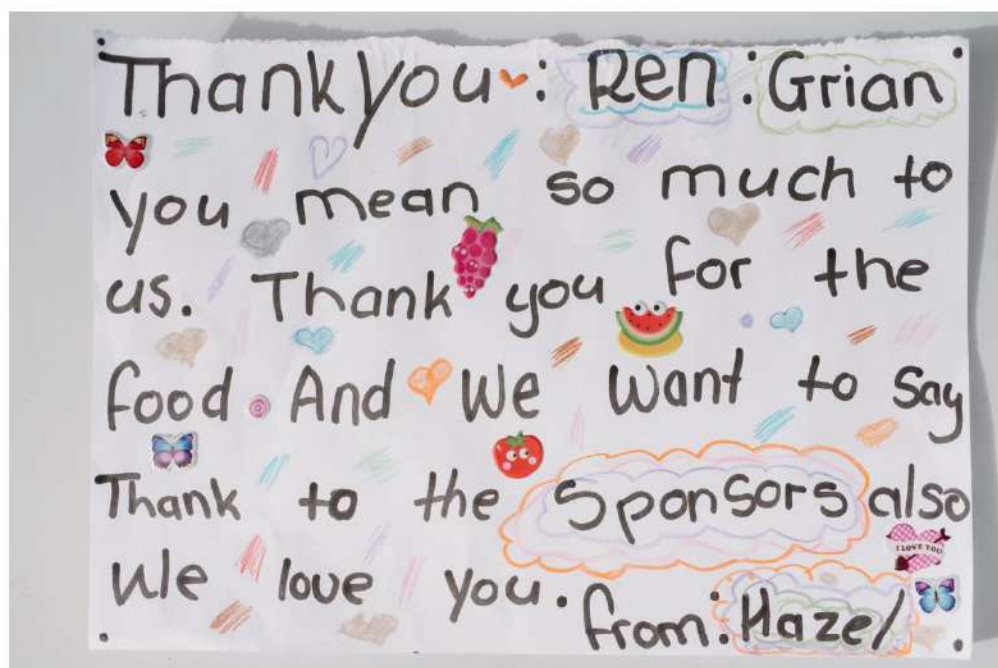 Thank you : Ren : Grian
you mean so much to
us. Thank you for the
food And We want to say
Thank to the Sponsors also
We love you. from: Hazel
I LOVE YOU